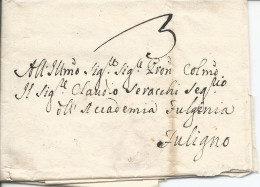 3
All'Illmo Sigre Sigre Pron Colmo
Il Sigre Claudio Seracchi Segrio
dell'Accademia Fulginia
Fuligno